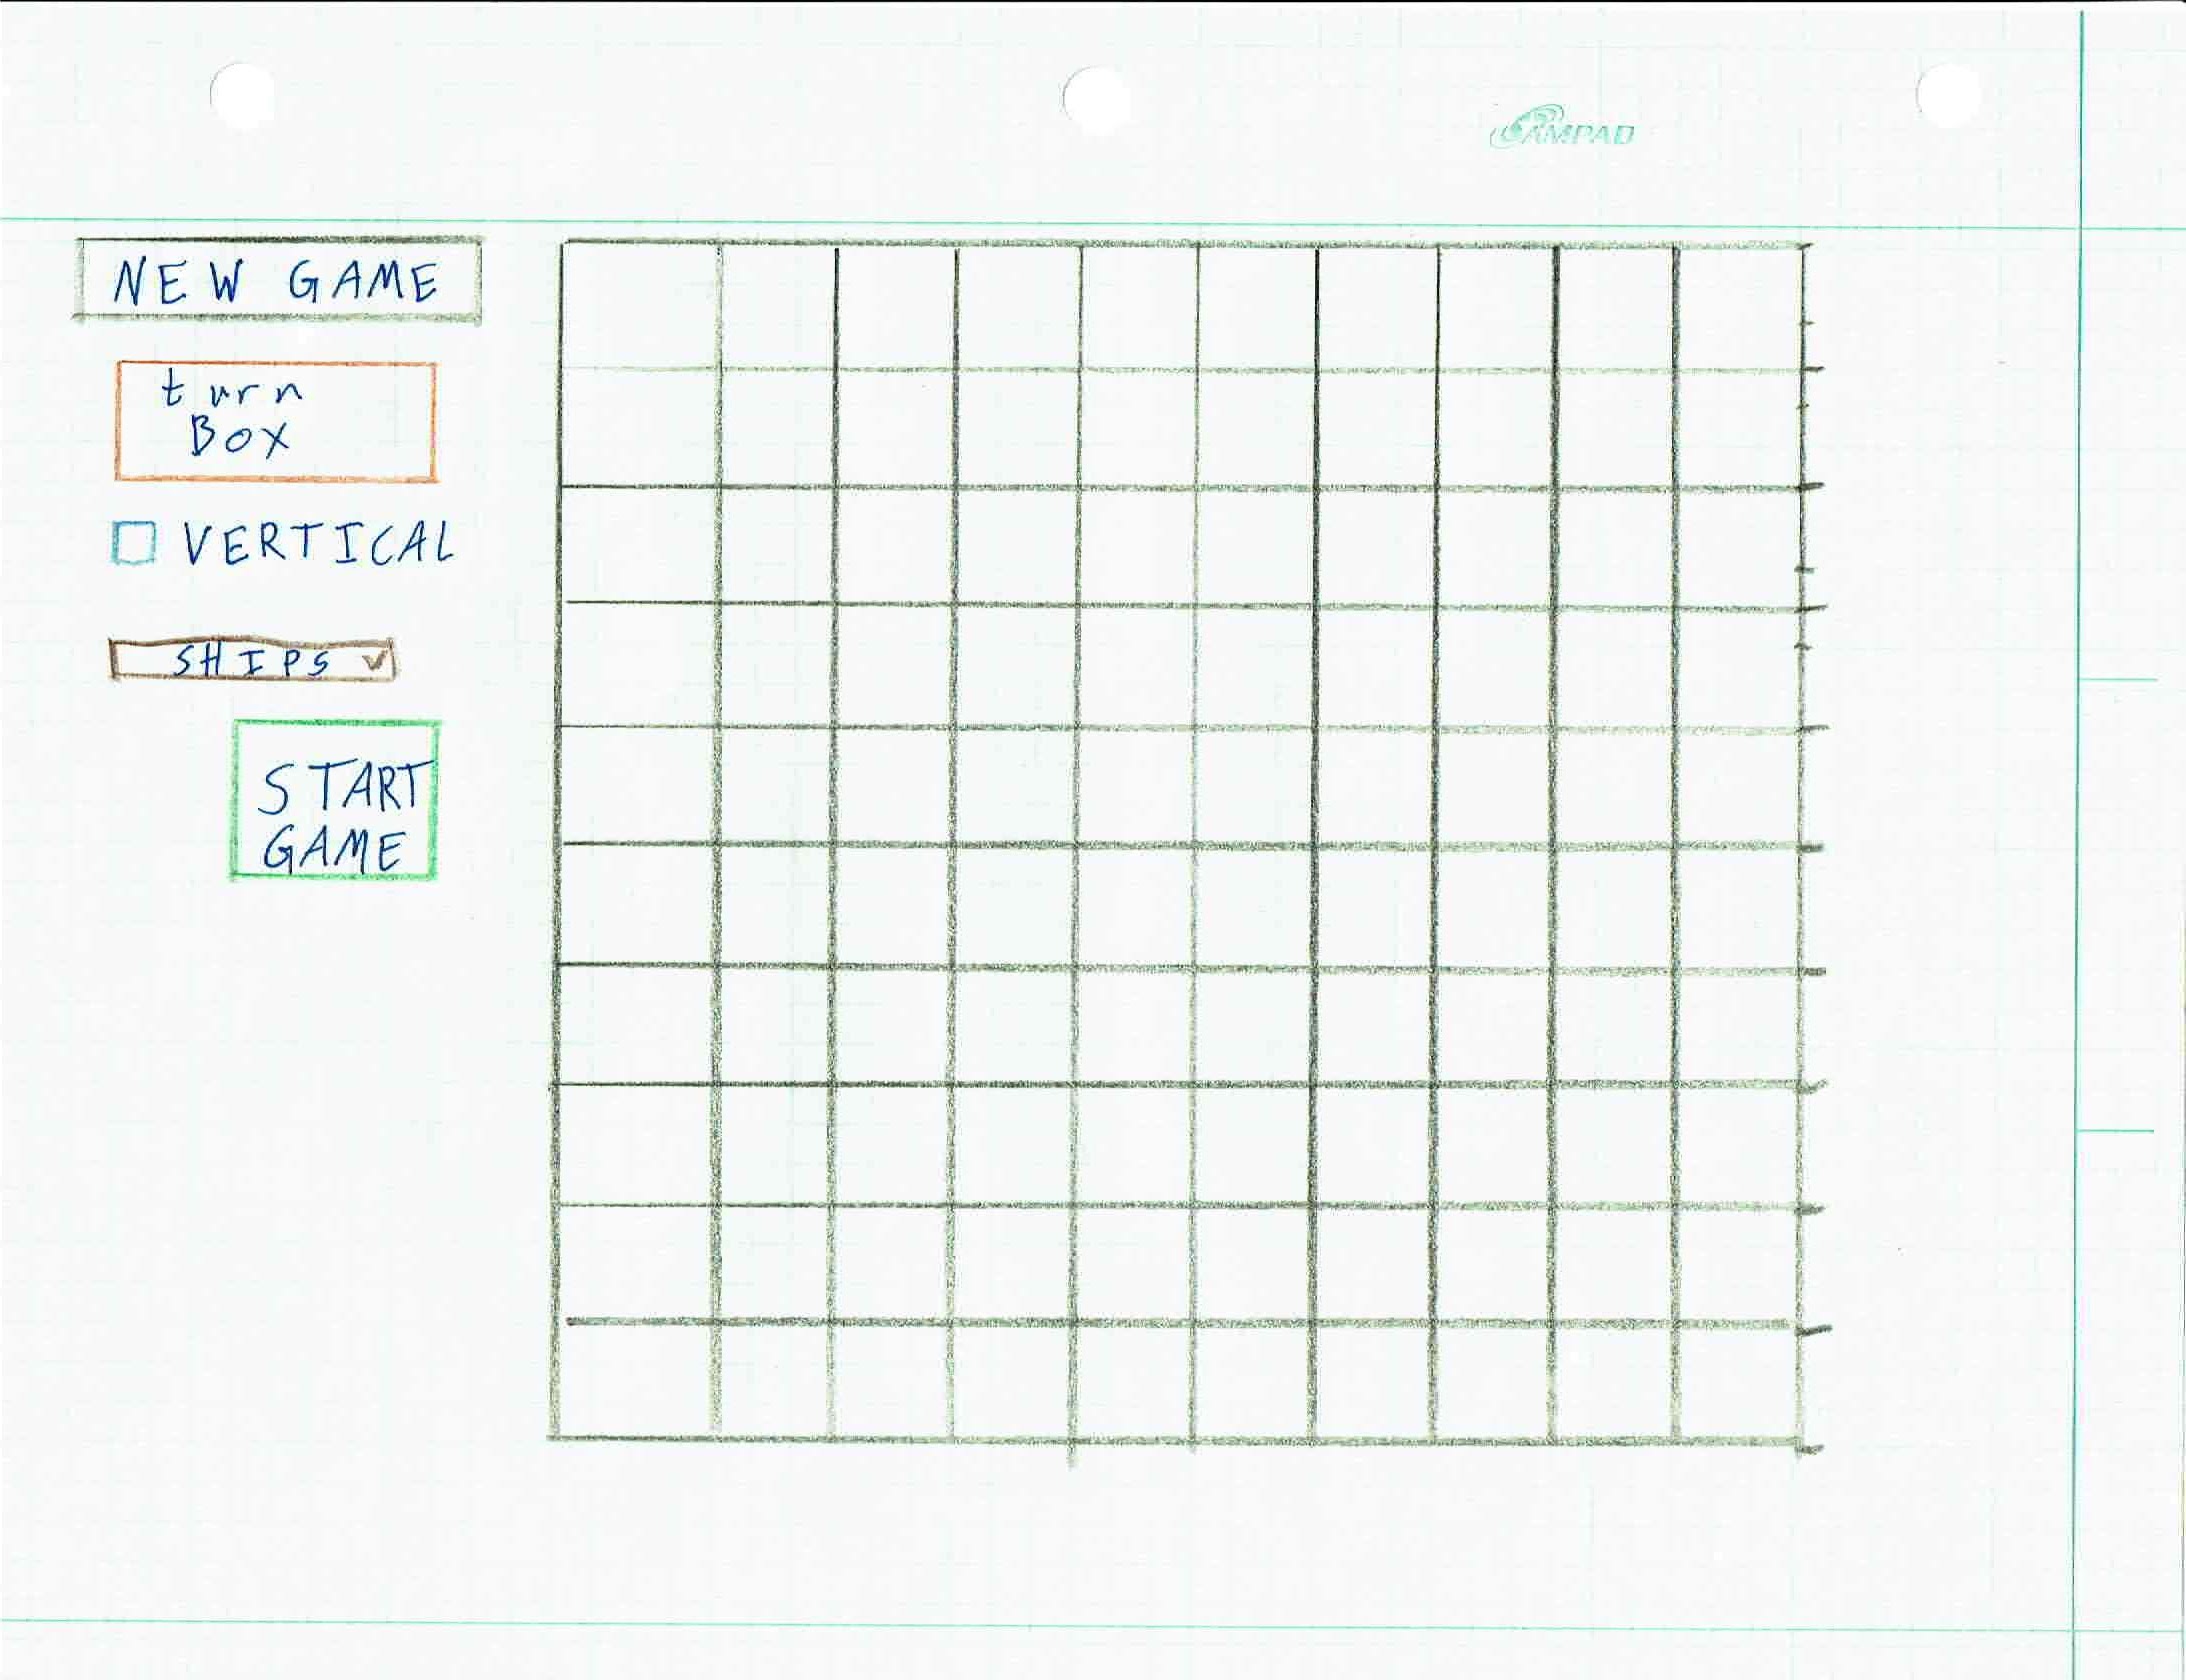 AMPAD
NEW GAME
turn
Box
VERTICAL
SHIPS
START
GAME